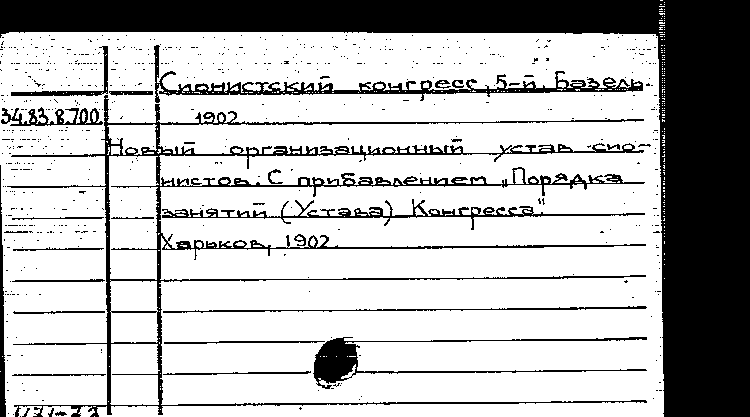 Сионистский конгресс, 5-й. Базель.
34.83.8.700. 1902
Новый организационный устав сио-
нистов. С прибавлением „Порядка
занятий (Устава) Конгресса".
Харьков, 1902.